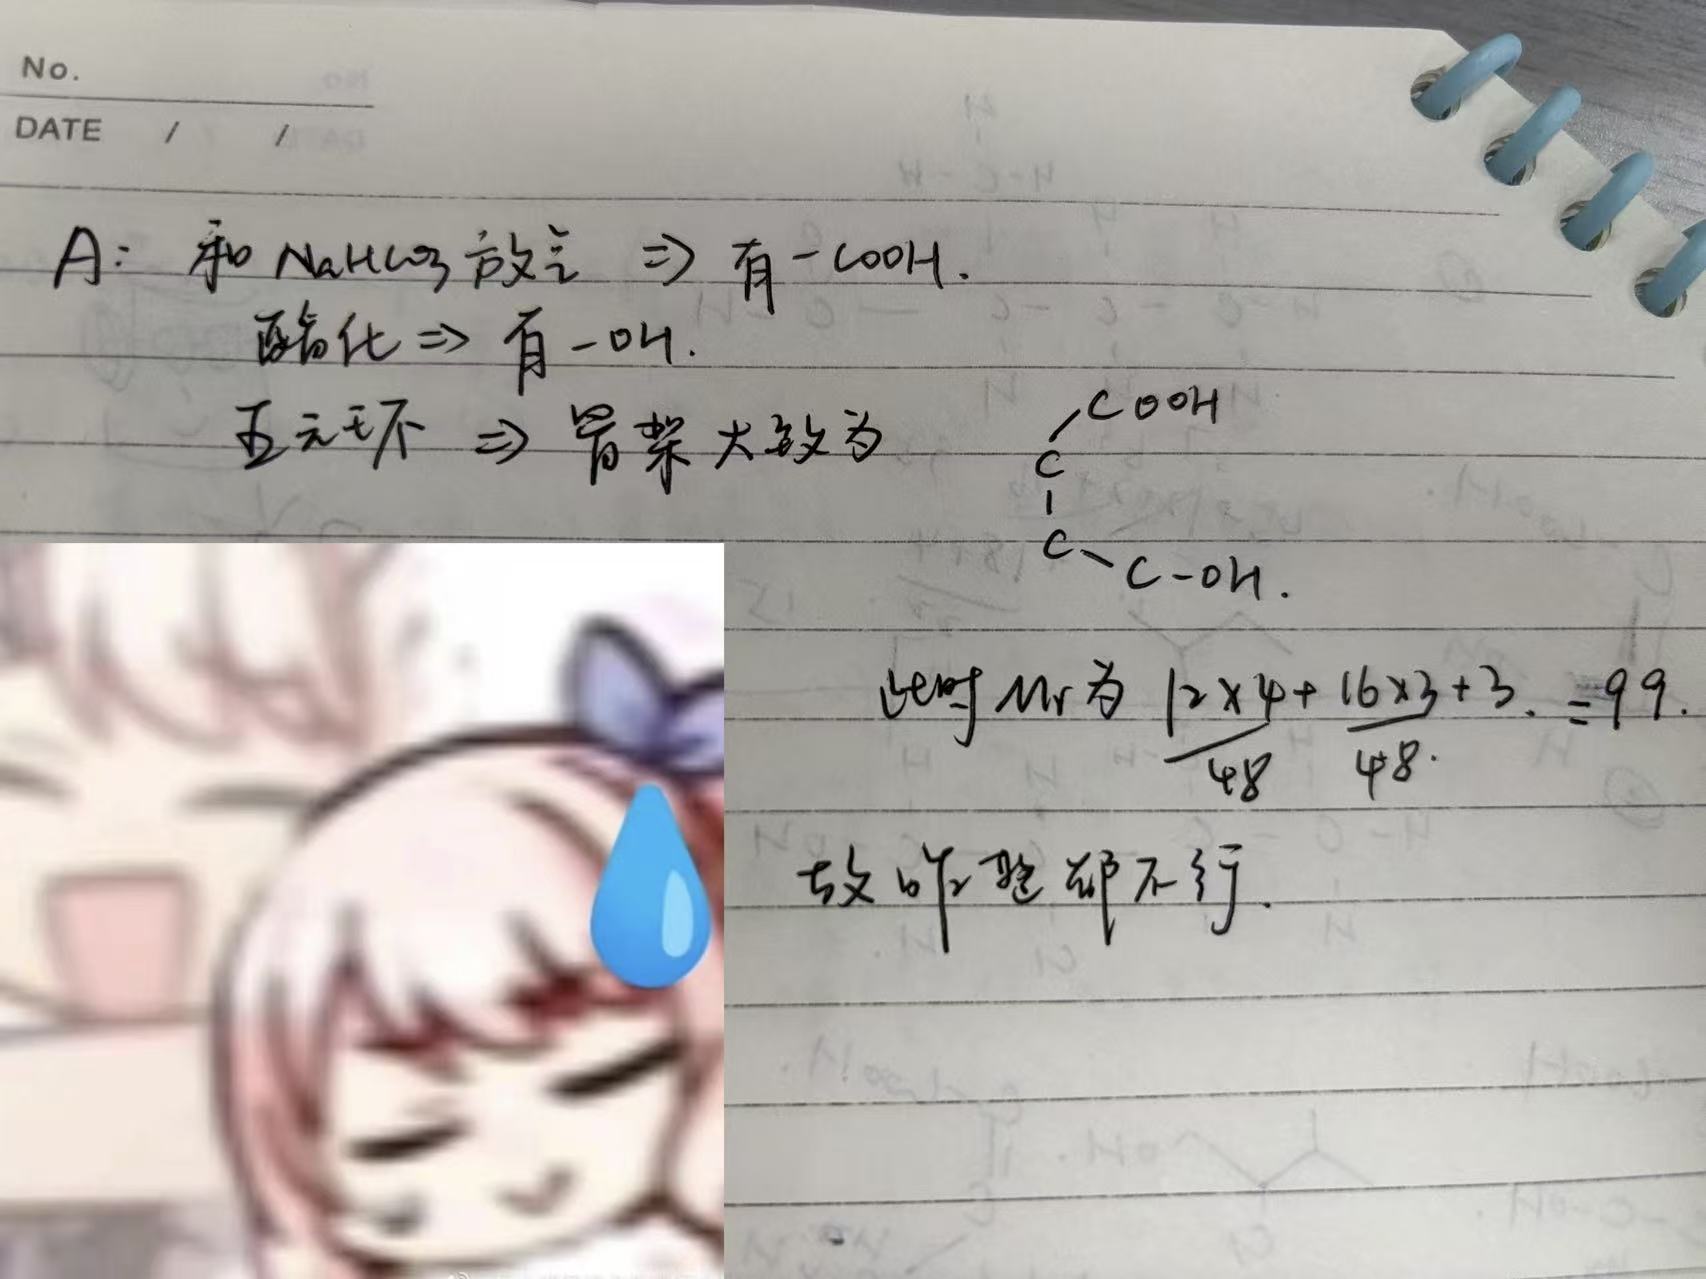 No.
DATE / /
A: 和 NaHCO3 放气 ⇒ 有 -COOH.
酯化 ⇒ 有 -OH.
五元环 ⇒ 骨架大致为
COOH
C
C
C-OH.
此时 Mr 为 12×4+16×3+3. =99.
48 48.
故 都不行.